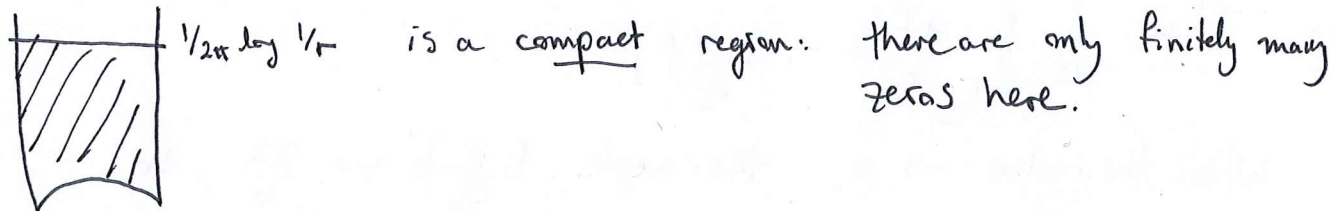 1/2π log 1/r is a compact region: there are only finitely many
zeros here.